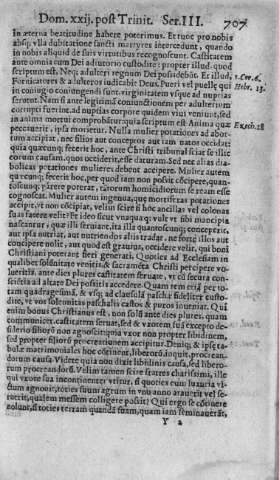 Dom. xxij. post Trinit. Ser. III. 707
In æterna beatitudine habere poterimus. Et ruoc pro nobis
absq; vlla dubitatione sancti martyres intercedunt, quando
in nobis aliquid de suis virtutibus recognoscunt. Castitatem
ante omnia cum Dei adiutorio custodite: propter illud quod
scriptum est, Neq; adulteri regnum Dei possidebūt. Et illud,
Fornicatores & adulteros iudicabit Deus. Pueri vel puellę qui
1. Cor. 6.
Hebr. 13.
in coniugio coniungendi sunt, virginitatem vsque ad nuptias
seruent. Nam si ante legitimā coniunctionem per adulterium
corrupti fuerint, ad nuptias corpore quidem viui veniunt, sed
in anima mortui comprobātur: quia scriptum est Anima quæ
Ezech. 18
peccauerit, ipsa morietur. Nulla mulier potationes ad abor-
sum accipiat, nec filios aut conceptos aut iam natos occidat:
quia quæcunq; fecerit hoc, ante Christi tribunal sciat se illis
eorum causam, quos occiderit, esse daturam. Sed nec alias dia-
bolicas potationes mulieres debent accipere. Mulier autem
nascantur, qui illi seruiant, ita illa quantoscunq; conceperit,
aut ipsa nutriat, aut nutriendos aliis tradat, ne forte illos aut
concipere nolit, aut quod est grauius, occidere velit, qui boni
Christiani poterant fieri generati. Quoties ad Ecclesiam in
qualibet solēnitate venitis, & sacramēta Christi percipere vo-
lueritis, ante dies plures castitatem seruate, vt cū secura con-
scientia ad altare Dei possitis accedere. Quam rem etiā per to-
tam quadragesimā, & vsq; ad clausulā paschæ fideliter custo-
dite, vt vos solennitas paschalis castos & puros inueniat. Qui
enim bonus Christianus est, non solū ante dies plures, quam
communicet, castitatem seruat, sed & vxorem suā excepto de-
siderio filiorū non agnoscit: quia vxor non propter libidinem,
sed propter filiorū procreationem accipitur. Deniq; & ipsę ta-
bulæ matrimoniales hoc cōtinent, liberorū, inquit, procrean-
dorum causa. Videte quia non dixit libidinis causa, sed libero-
rum procreandorū. Velim tamen scire fratres charissimi, ille
qui vxore sua incontinenter vtitur, si quoties eum luxuria vi-
ctum agnouit, toties suum agrum in vno anno arauerit vel se-
uerit, qualem messem colligere possit? Qui ergo se cōtinere
nolunt, si toties terram quandā suam, quam iam seminauerāt,
Y 2